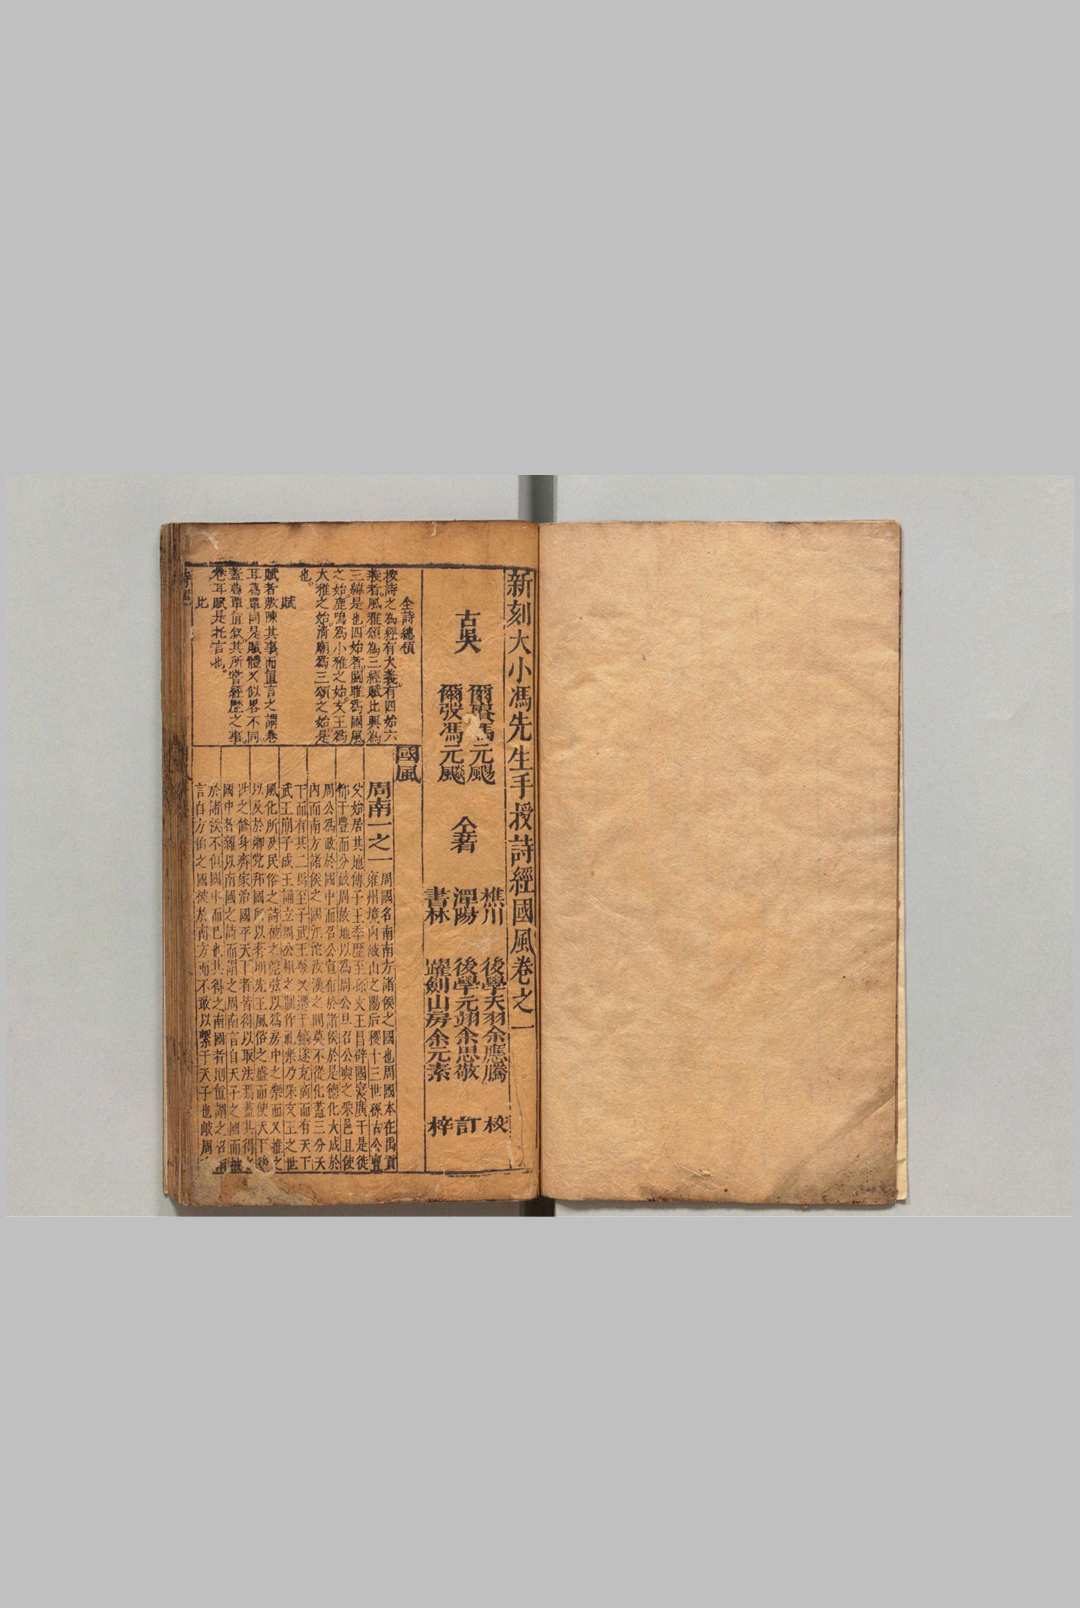 新刻大小馮先生手授詩經國風卷之一
古吳
爾賡馮元颺
爾弢馮元飈
仝著
樵川 後學天羽余應騰 校
潭陽 後學元翊余思敬 訂
書林 躍劍山房余元素 梓
國風
全詩總領
按詩之為經有大義有四始六
義者風雅頌為三經賦比興為
三緯是也四始者關雎為國風
之始鹿鳴為小雅之始文王為
大雅之始清廟為三頌之始是
也
賦
賦者敷陳其事而直言之謂卷
耳葛覃同是賦體又似畧不同
蓋葛覃直敘其所嘗經歷之事
卷耳賦是托言也
比
周南一之一
周國名南南方諸侯之國也周國本在禹貢
雍州境內岐山之陽后稷十三世孫古公亶
父始居其地傳子王季歷至孫文王昌辟國寖廣于是徙
都于豐而分岐周故地以為周公旦召公奭之采邑且使
周公為政於國中而召公宣布於諸侯於是德化大成於
內而南方諸侯之國江沱汝漢之間莫不從化蓋三分天
下而有其二焉至子武王發又遷于鎬遂克商而有天下
武王崩子成王誦立周公相之制作禮樂乃采文王之世
風化所及民俗之詩被之筦弦以為房中之樂而又推之
以及於鄉黨邦國所以著明先王風俗之盛而使天下後
世之修身齊家治國平天下者皆得以取法焉蓋其得之
國中者雜以南國之詩而謂之周南言自天子之國而被
於諸侯不但國中而已也其得之南國者則直謂之召南
言自方伯之國被於南方而不敢以繫于天子也岐周